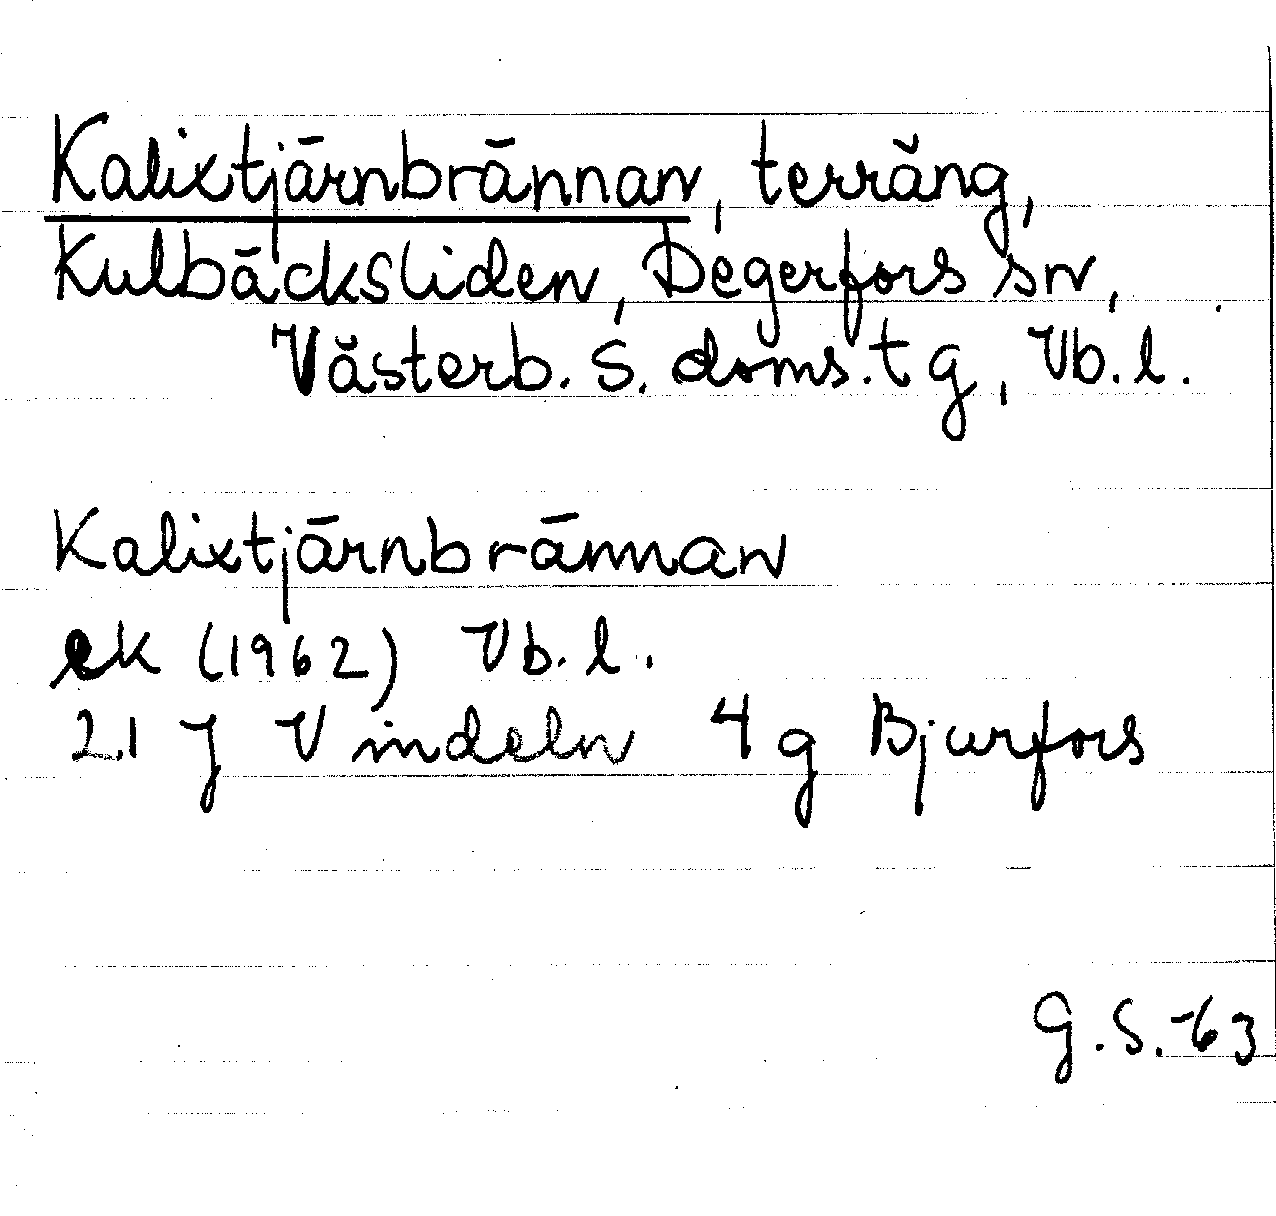 Kalixtjärnbrännan, terräng,
Kulbäcksliden, Degerfors sn,
Västerb. s. doms. tg, Vb. l.
Kalixtjärnbrännan
ek (1962) Vb. l.
21 J Vindeln 4 g Bjurfors
G.S.-63